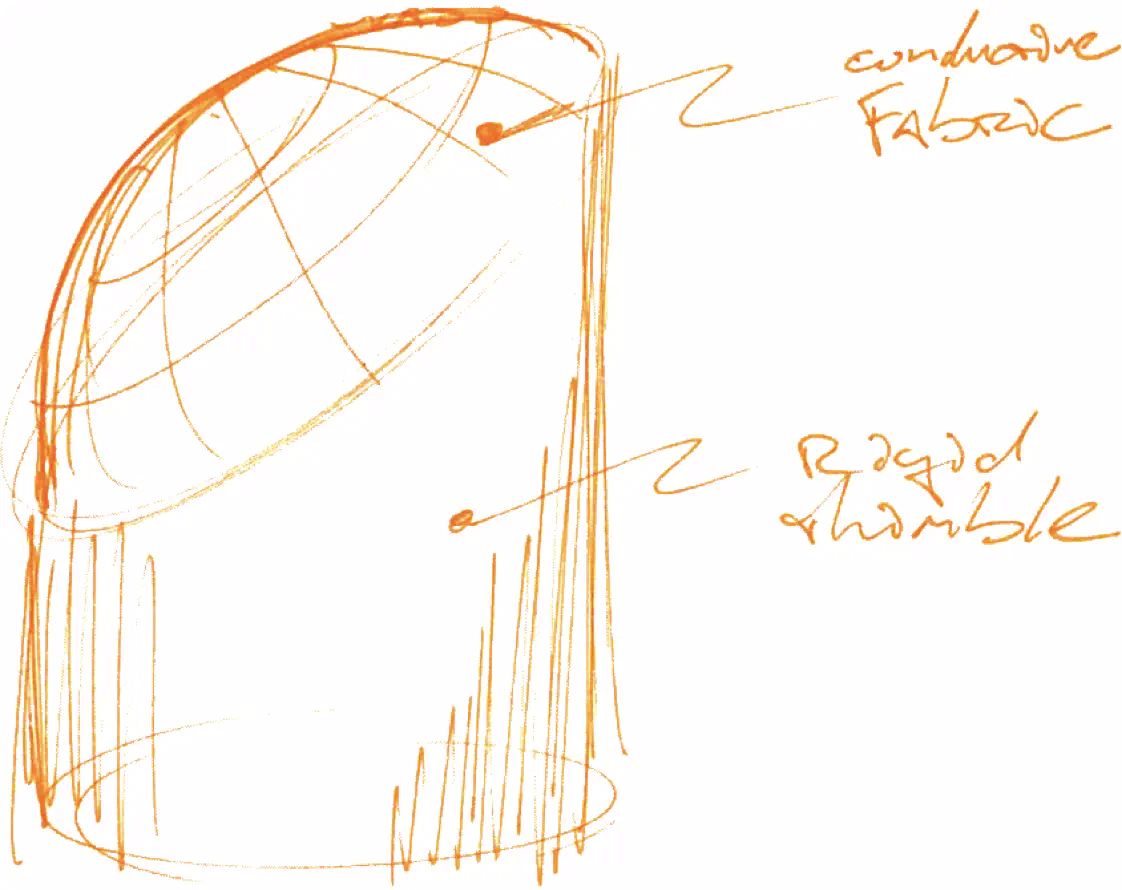 conductive
FAbric
Rigid
thimble